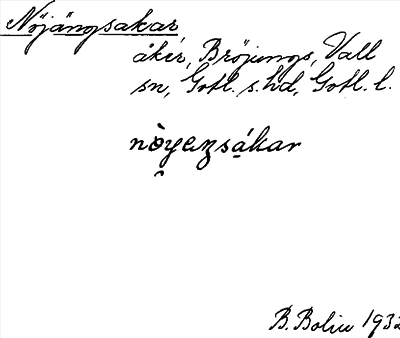 Nöjängsakar
åker, Bröjungs, Vall
sn, Gotl. s. hd, Gotl. l.
nòyezsákar
B. Bolin 1932